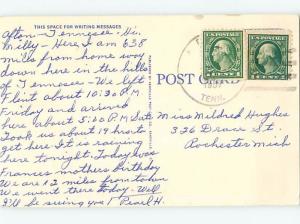 THIS SPACE FOR WRITING MESSAGES
Afton - Tennessee - Hi.
Milly - Here I am 638
miles from home way
down here in the hills
of Tennessee - We left
Flint about 10:30 P.M.
Friday and arrived
here about 5:00 P.M. Sat.
Took us about 19 hrs to
get here It is raining
here tonight. Today was
Frances mothers birthday
We are 12 miles from town
We went there today - Well
I'll be seeing you! Pearl H.
POST CARD
TENN.
Miss Mildred Hughes
336 Drace St.
Rochester Mich